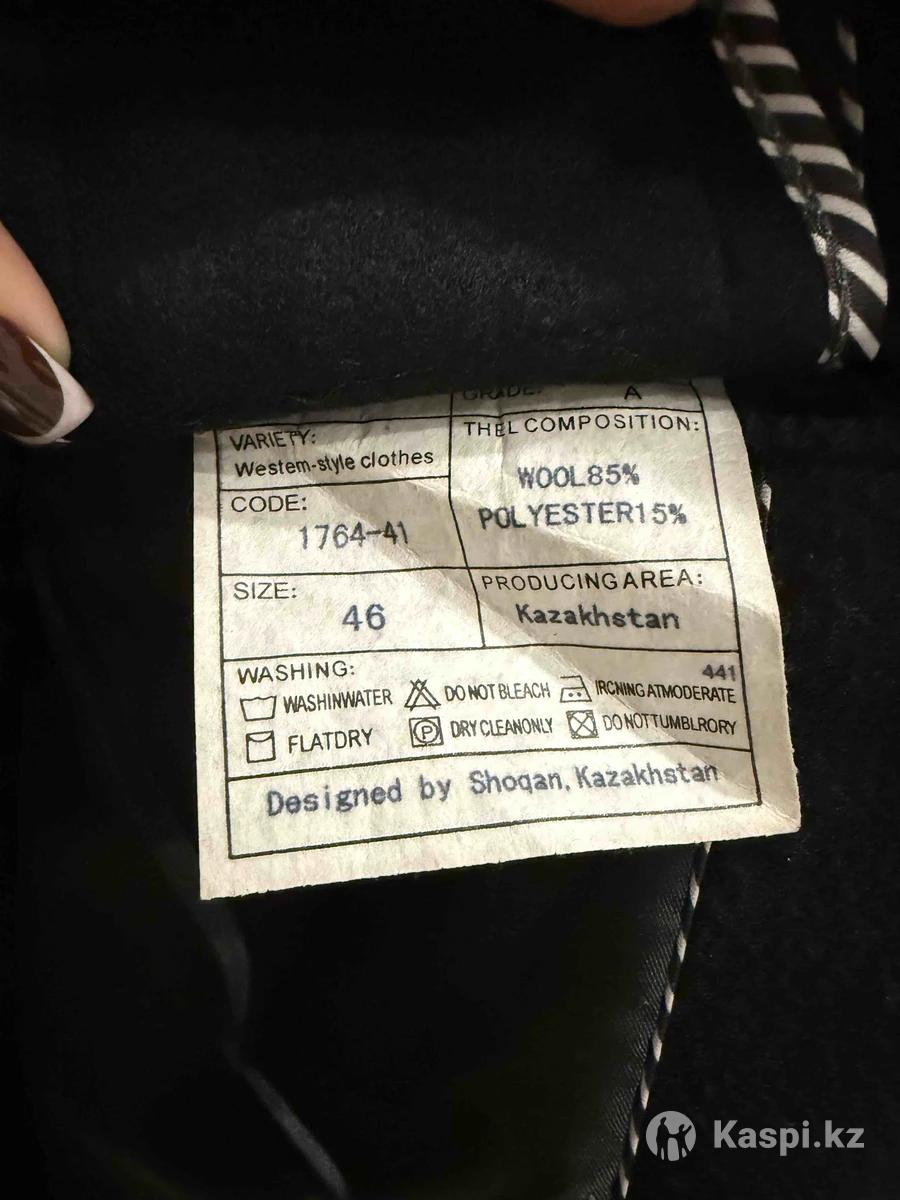 GRADE: A
VARIETY:
Westem-style clothes
THEL COMPOSITION:
WOOL85%
POLYESTER15%
CODE:
1764-41
SIZE:
46
PRODUCINGAREA:
Kazakhstan
WASHING:
441
WASHINWATER DO NOT BLEACH IRCNING ATMODERATE
FLATDRY P DRY CLEANONLY DO NOT TUMBLRORY
Designed by Shoqan, Kazakhstan
Kaspi.kz